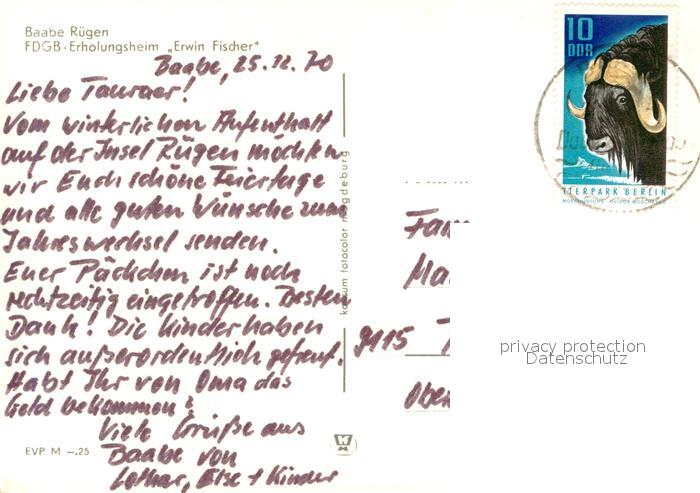 Baabe Rügen
FDGB-Erholungsheim „Erwin Fischer"
Baabe, 25.12.70
Liebe Tauraer!
Vom winterlichen Aufenthalt
auf der Insel Rügen möchten
wir Euch schöne Feiertage
und alle guten Wünsche zum
Jahreswechsel senden.
Euer Päckchen ist noch
rechtzeitig eingetroffen. Besten
Dank! Die Kinder haben
sich außerordentlich gefreut.
Habt Ihr von Oma das
Geld bekommen?
Viele Grüße aus
Baabe von
Lothar, Else + Kinder
EVP M –.25
foto color magdeburg
10
DDR
TIERPARK BERLIN
MOSCHUSOCHSE · OVIBOS MOSCHATUS
Fam
Ma
9115 T
Ober
privacy protection
Datenschutz